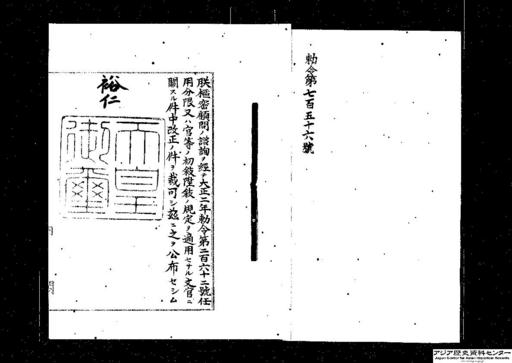 勅令第七百五十六號
朕樞密顧問ノ諮詢ヲ經テ大正二年勅令第二百六十二號任
用分限又ハ官等ノ初敍陞敍ノ規定ヲ適用セサル文官ニ
關スル件中改正ノ件ヲ裁可シ茲ニ之ヲ公布セシム
裕仁
天皇
御璽
アジア歴史資料センター
Japan Center for Asian Historical Records